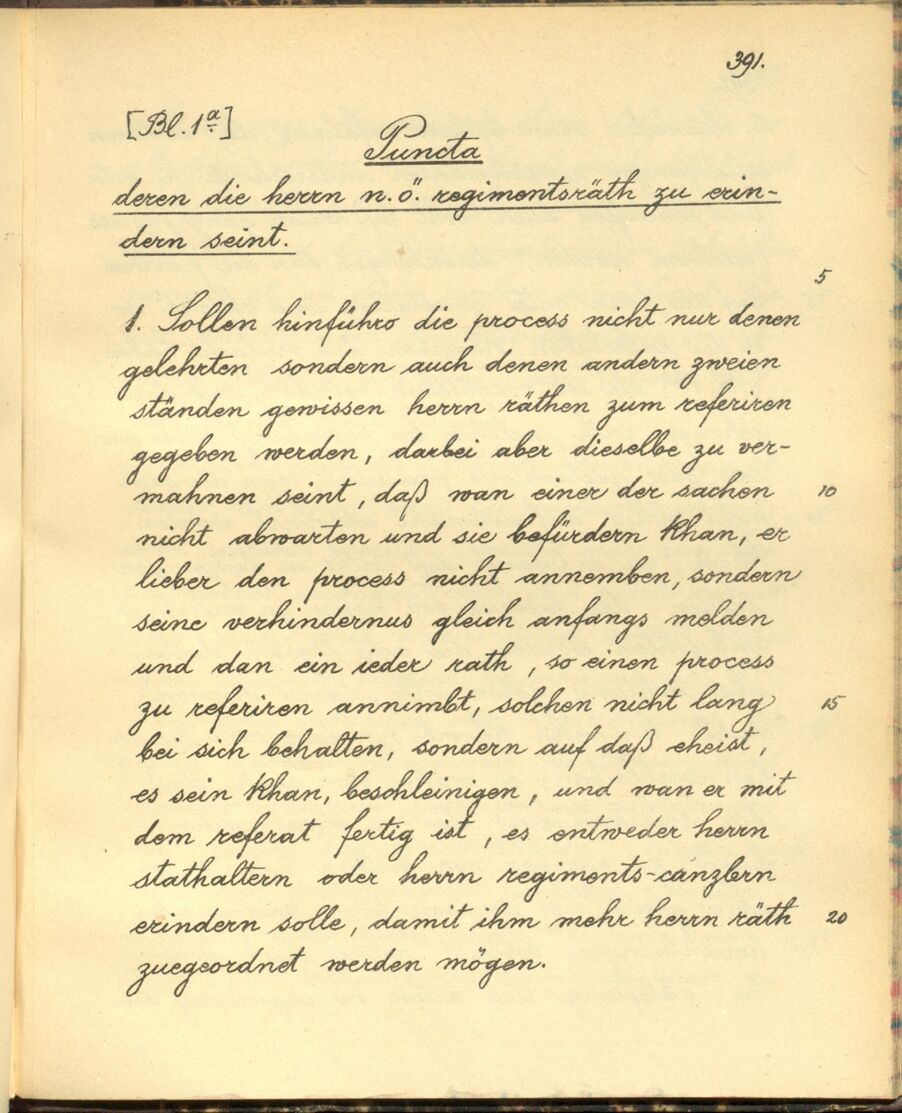 391.
[Bl. 1a]
Puncta
deren die herrn n.ö. regimentsräth zu erin-
dern seint.
5
1. Sollen hinführo die process nicht nur denen
gelehrten sondern auch denen andern zweien
ständen gewissen herrn räthen zum referiren
gegeben werden, darbei aber dieselbe zu ver-
mahnen seint, daß wan einer der sachen 10
nicht abwarten und sie befürdern khan, er
lieber den process nicht annemben, sondern
seine verhindernus gleich anfangs melden
und dan ein ieder rath, so einen process
zu referiren annimbt, solchen nicht lang 15
bei sich behalten, sondern auf daß eheist,
es sein khan, beschleinigen, und wan er mit
dem referat fertig ist, es entweder herrn
stathaltern oder herrn regiments-canzlern
erindern solle, damit ihm mehr herrn räth 20
zuegeordnet werden mögen.